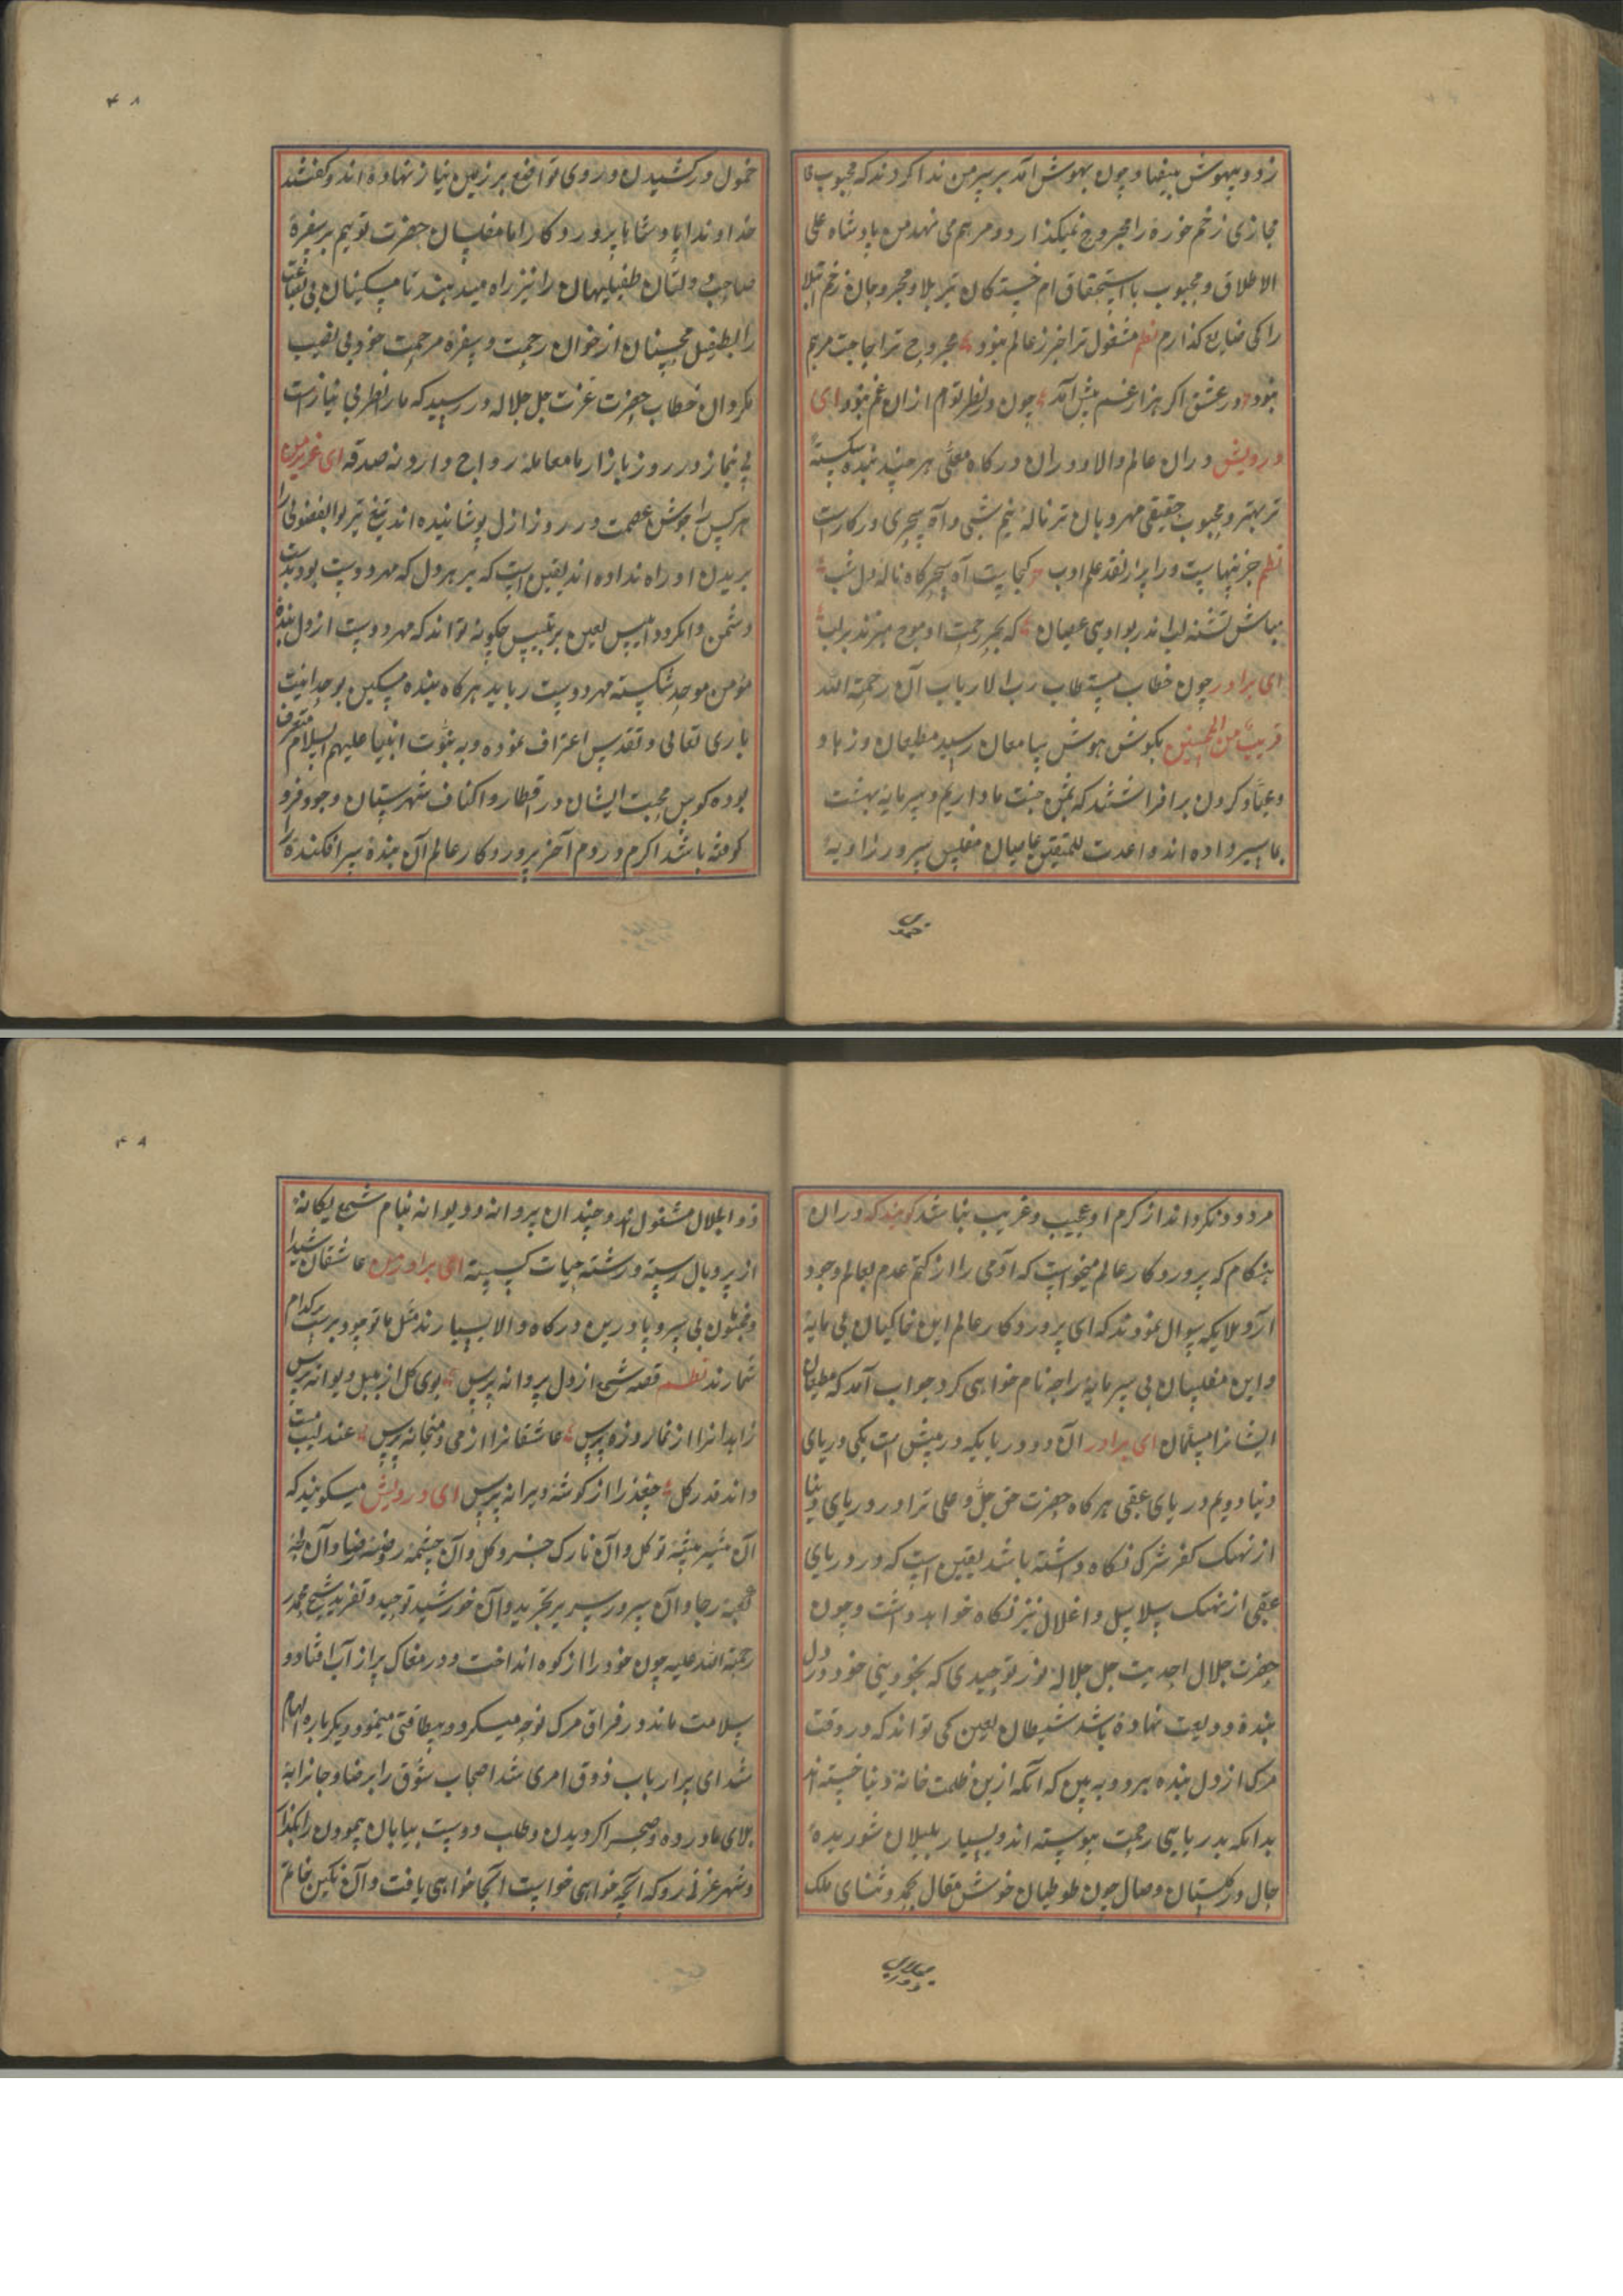 زد و بیهوش بیفتاد چون بهوش آمد بر سر من ندا کردند که محبوب
مجازی زخم خورده را مجروح نمیگذارد و مرهم می نهد من پادشاه علی
الاطلاق و محبوب باستحقاق ام خستکان تیر بلا و مجروحان زخم ابتلا
را کی ضایع کذارم نظم مشغول ترا خبر ز عالم نبود مجروح ترا حاجت مرهم
نبود در عشق اکر هزار غم پیش آمد چون در نظر توام ازان غم نبود ای
درویش دران عالم والا و دران درکاه معلی هر چند بنده شکسته
تر بهتر و محبوب حقیقی مهربان تر ناله نیم شبی و آه سحری در کارست
نظم جز ینهاست ورا پر از نقد علم ادب کجایست آه سحرکاه ناله دل شب
مباش تشنه لب اندر بوادی عصیان که بحر رحمت او موج میزند بر لب
ای برادر چون خطاب مستطاب رب الارباب آن رحمة الله
قریب من المحسنین بکوش هوش سامعان رسید مطیعان و زهاد
و عباد کردن برافراشتند که ثمن جنت ما داریم و سرمایه بهشت
بما سپرده اند و اعدت للمتقین عاصیان مفلس سر در زاویه
خمول
خمول در کشیدن و روی تواضع بر زمین نیاز نهاده اند و کفتند
خداوندا پادشاها پروردکارا ما مفلسان حضرت توییم بر سفره
صاحب دولتان طفیلیهان را نیز راه میدهند تا مسکینان بی بضاعت
را بطفیل محسنان از خوان رحمت و سفره مرحمت خود بی نصیب
مکردان خطاب حضرت عزت جل جلاله در رسید که ما را نظر بی نیازست
بی نماز در روز بازار با معامله رواج دارد نه صدقه ای عزیز من
هر کس را جوشن عصمت در روز ازل پوشانیده اند تیغ تیز بوالفضولی را
بریدن او راه نداده اند یقین است که بر هر دل که مهر دوست بود بدست
دشمن وا نکردد ابلیس لعین بر تلبیس چکونه تواند که مهر دوست از دل بنده
مومن موحد شکسته مهر دوست رباید هرکاه بنده مسکین بوحدانیت
باری تعالی و تقدس اعتراف نموده و به نبوت انبیا علیهم السلام معترف
بوده کوس محبت ایشان در اقطار و اکناف شهرستان وجود فرو
کوفته باشد اکر مردم آخر پروردکار عالم آن بنده سرافکنده را
مردود نکرداند از کرم او عجیب و غریب نباشد کویند که دران
هنکام که پروردکار عالم میخواست که آدمی را از کتم عدم بعالم وجود
آرد ملایکه سوال نمودند که ای پروردکار عالم این خاکیان بی مایه
و این مفلسان بی سرمایه را چه نام خواهی کرد جواب آمد که مطیعان
ایشانرا مسلمان ای برادر آن دو دریا که در پیش است یکی دریای
دنیا دویم دریای عقبی هر کاه حضرت حق جل و علی ترا در دریای دنیا
از نهنک کفر شرک نکاه داشته باشد یقین است که در دریای
عقبی از نهنک سلاسل و اغلال نیز نکاه خواهد داشت و چون
حضرت جلال احدیت جل جلاله نور توحیدی که بخودینی خود در دل
بنده ودیعت نهاده باشد شیطان لعین کی تواند که در وقت
مرک از دل بنده ببرد و به بین که آنکه ازین ظلمت خانه دنیا خسته اند
بدانکه بدریای رحمت پیوسته اند و بسیار بلبلان شوریده
حال در کلستان وصال چون طوطیان خوش مقال بحمد و ثنای ملک
ذو الجلال مشغول اند و چندان پروانه و دیوانه بنام شمع یکانه
از پر و بال رسته و رشته حیات کسسته ای برادر من عاشقان شیدا
و مجنون بی سر و پا درین درکاه والا بسیارند مثل ما تو خود بر سر کدام
شمارند نظم قصه شمع از دل پروانه پرس بوی کل از بلبل دیوانه پرس
زاهدانرا از نماز روزه پرس عاشقانرا از می و میخانه پرس عندلیب مست
داند قدر کل چغد را از کوشه ویرانه پرس ای درویش میکویند که
آن شیر بیشه توکل و آن تارک جزو کل و آن چشمه روضه رضا و آن
کعبه رجا و آن سرور سریر تجرید و آن خورشید توحید و تفرید شیخ محمد
رحمة الله علیه چون خود را از کوه انداخت و در مغاک پر از آب افتاد و
سلامت ماند و در فراق مرک نوحه میکرد و بیطاقتی مینمود دیکر باره الهام
شد ای سر ارباب ذوق امری شد اصحاب شوق را بر رضا و جانرا به
بلای ما در ده و صحرا کردیدن و طلب دوست بیابان پیمودن را بکذار
و شهر غزنه رو که آنچه خواهی خواست آنجا خواهی یافت و آن نکین خاتم